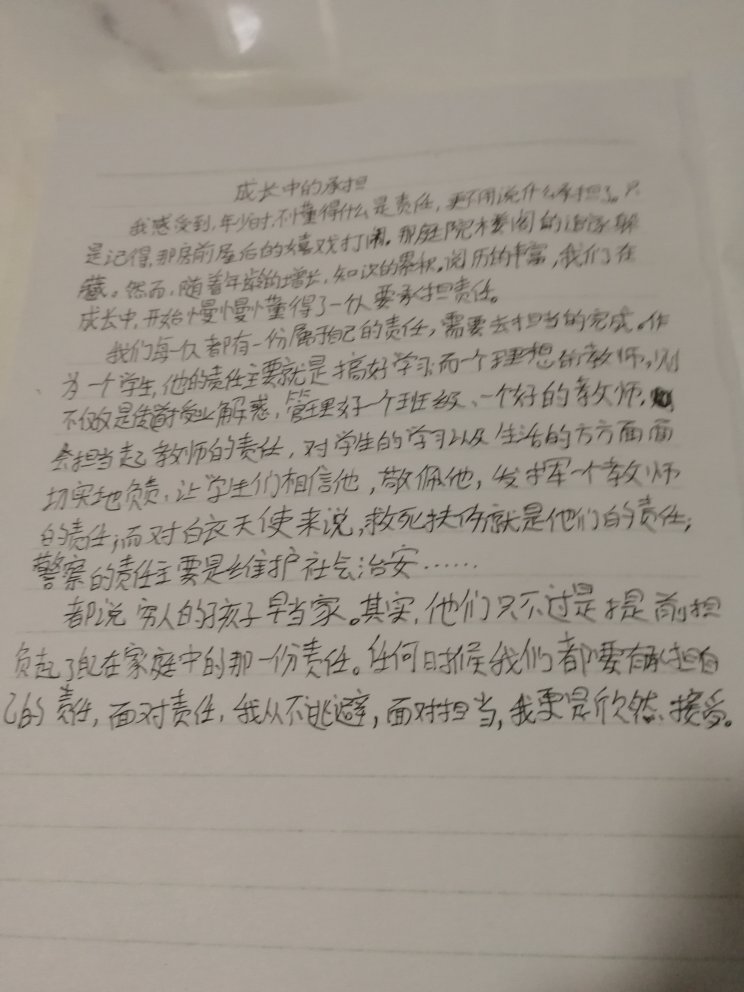 成长中的承担
我感受到,年少时,不懂得什么是责任,更不用说什么承担了。只
是记得,那房前屋后的嬉戏打闹。那庭院楼阁的追逐躲
藏。然而,随着年龄的增长,知识的累积。阅历的丰富,我们在
成长中,开始慢慢懂得了一个人要承担责任。
我们每个人都有一份属于自己的责任,需要去担当的完成。作
为一个学生,他的责任主要就是搞好学习,而一个理想的教师,则
不仅是传道授业解惑,管理好一个班级、一个好的教师,
会担当起教师的责任,对学生的学习以及生活的方方面面
切实地负责,让学生们相信他,敬佩他,发挥一个教师
的责任;而对白衣天使来说,救死扶伤就是他们的责任;
警察的责任主要是维护社会治安……
都说穷人的孩子早当家。其实,他们只不过是提前担
负起了自己在家庭中的那一份责任。任何时候我们都要有承担自
己的责任,面对责任,我从不逃避,面对担当,我更是欣然接受。